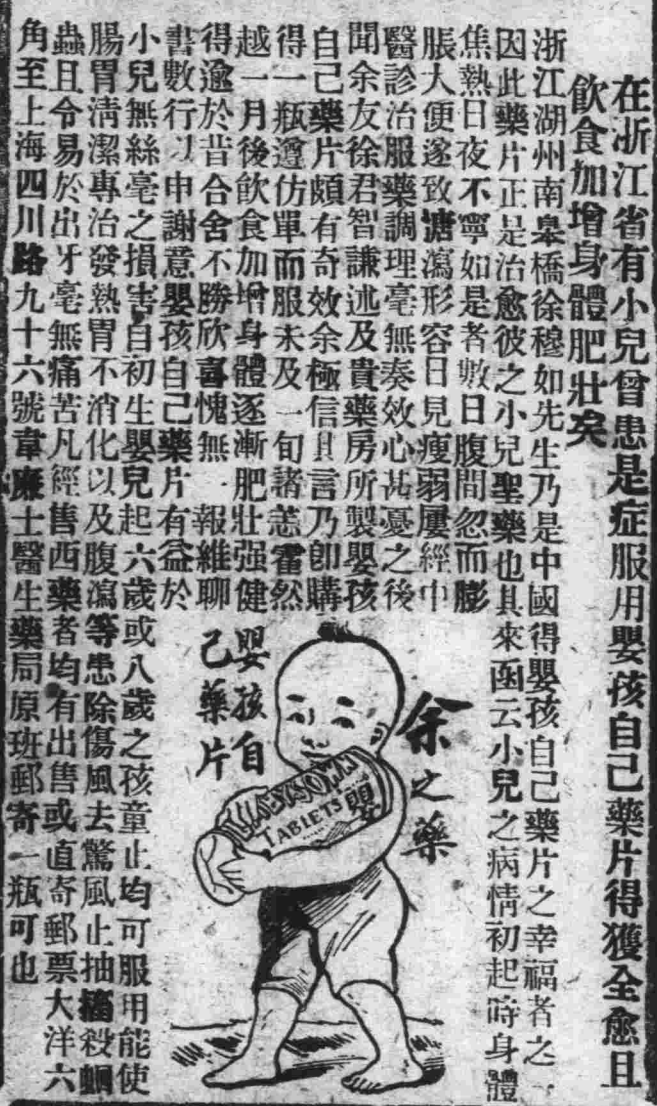 在浙江省有小兒曾患是症服用嬰孩自己藥片得獲全愈且
飲食加增身體肥壯矣
浙江湖州南皋橋徐穆如先生乃是中國得嬰孩自己藥片之幸福者之一
因此藥片正是治愈彼之小兒聖藥也其來函云小兒之病情初起時身體
焦熱日夜不寧如是者數日腹間忽而膨
脹大便遂致溏瀉形容日見瘦弱屢經中
醫診治服藥調理毫無奏效心甚憂之後
聞余友徐君智謙述及貴藥房所製嬰孩
自己藥片頗有奇效余極信其言乃卽購
得一瓶遵仿單而服未及一旬諸恙霍然
越一月後飲食加增身體逐漸肥壯强健
得逾於昔合舍不勝欣喜愧無一報維聊
書數行以申謝意嬰孩自己藥片有益於
小兒無絲毫之損害自初生嬰兒起六歲或八歲之孩童止均可服用能使
腸胃淸潔專治發熱胃不消化以及腹瀉等患除傷風去驚風止抽搐殺蛔
蟲且令易於出牙毫無痛苦凡經售西藥者均有出售或直寄郵票大洋六
角至上海四川路九十六號韋廉士醫生藥局原班郵寄一瓶可也
余之藥
嬰孩自
己藥片
TABLETS
嬰